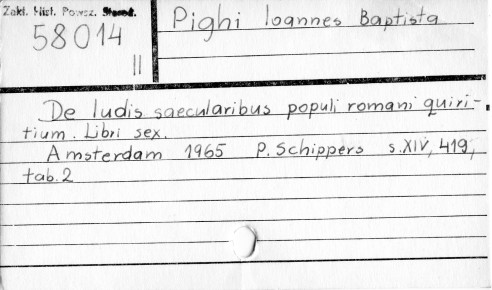 Zakł. Hist. Powsz. Staroż.
58014
II
Pighi Ioannes Baptista
De ludis saecularibus populi romani quiri-
tium. Libri sex.
Amsterdam 1965 P. Schippers s.XIV, 419,
tab. 2